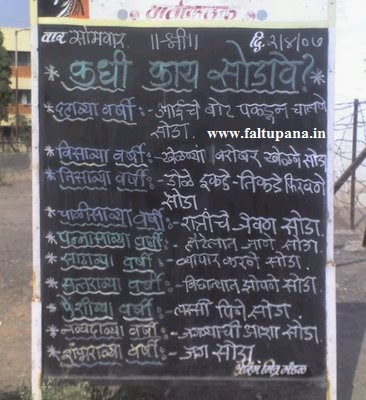 वार्ताफलक
वार सोमवार ॥श्री॥ दि. २/४/०७
* कधी काय सोडावे? *
* दहाव्या वर्षी :- आईचे बोट पकडून चालणे
सोडा.
www.faltupana.in
* विसाव्या वर्षी :- खेळण्या बरोबर खेळणे सोडा
* तिसाव्या वर्षी :- डोळे इकडे-तिकडे फिरवणे
सोडा
* चाळीसाव्या वर्षी :- रात्रीचे जेवण सोडा.
* पन्नासाव्या वर्षी :- हॉटेलात जाणे सोडा.
* साठाव्या वर्षी :- व्यापार करणे सोडा.
* सत्तराव्या वर्षी :- बिछान्यात झोपणे सोडा.
* ऐंशीव्या वर्षी :- लस्सी पिणे सोडा.
* नव्वदाव्या वर्षी :- जगण्याची आशा सोडा.
* शंभराव्या वर्षी :- जग सोडा.
मित्र मंडळ